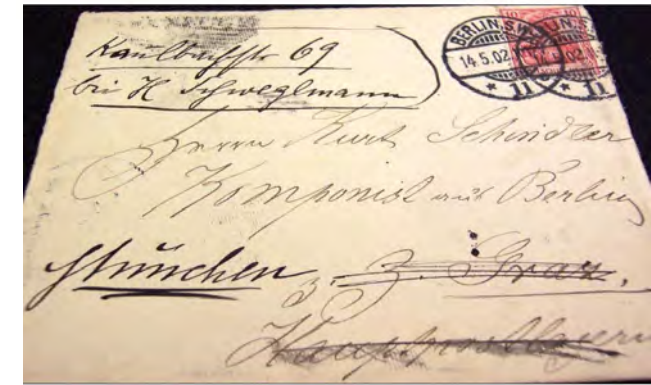 Kaulbachstr 69
bei H Schweglmann
10 10
BERLIN. S.W.
14.5.02
* 11
BERLIN. S.W.
14.5.02
* 11
Herrn Kurt Schindler
Komponist aus Berlin
München z. Z. Graz.
Hauptpostlagernd